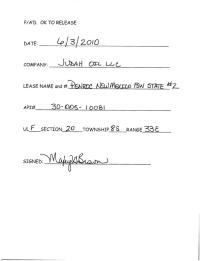 P/A'D. OK TO RELEASE
DATE: 6/3/2010
COMPANY: JUDAH OIL LLC
LEASE NAME and #: PENROC NEW MEXICO BW STATE #2
API# 30-005-10081
UL F SECTION 20 TOWNSHIP 8S RANGE 33E
SIGNED